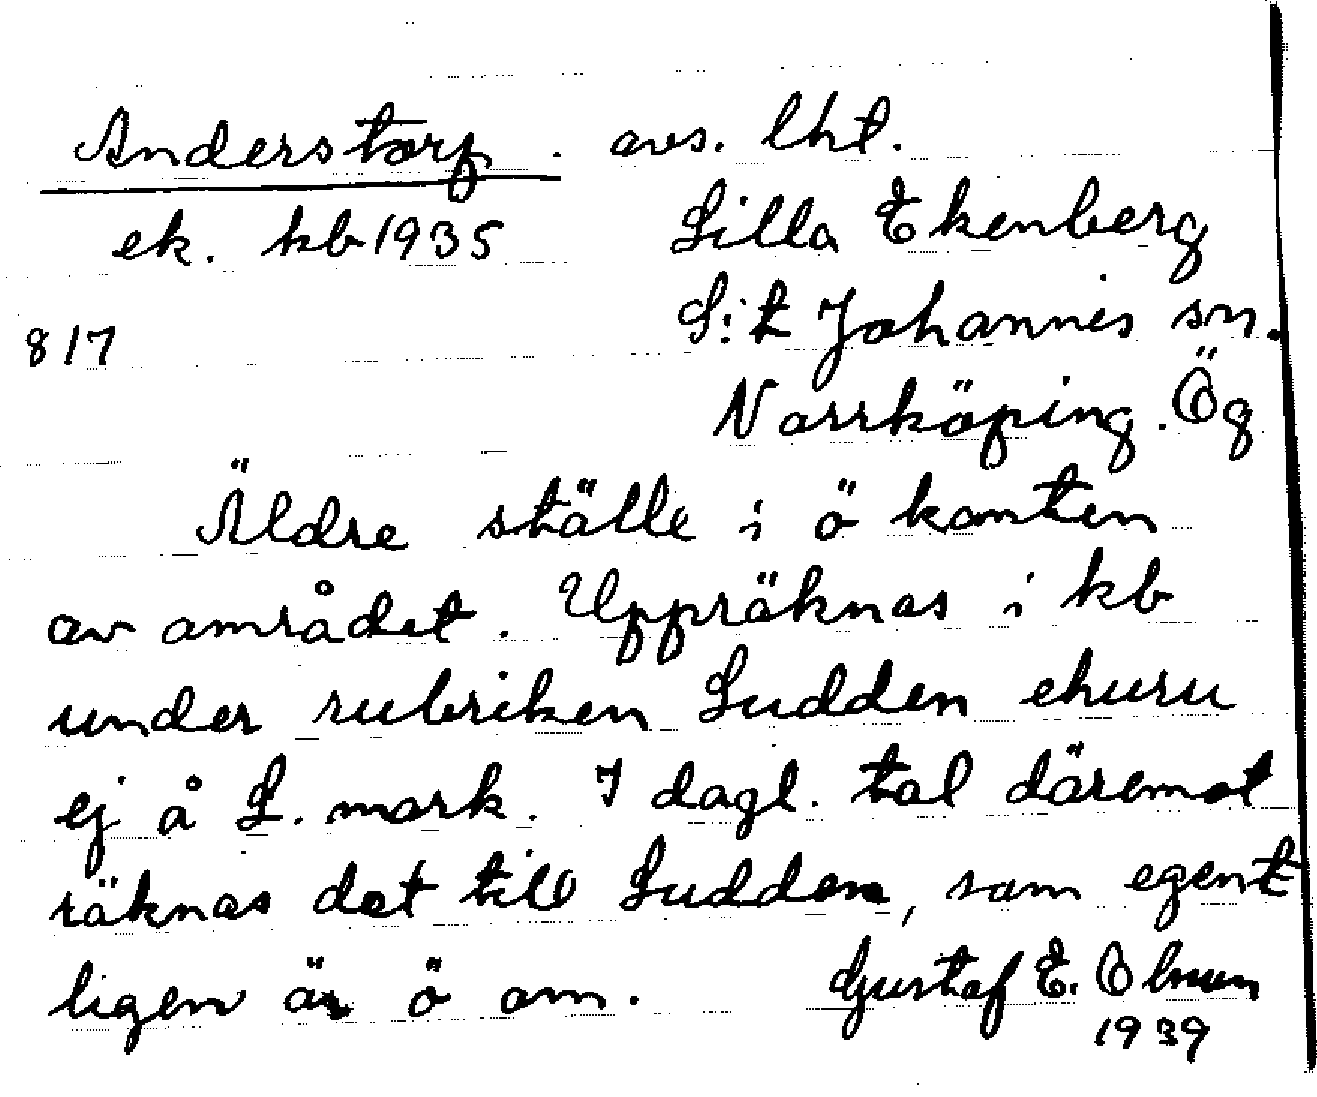 Anderstorp. avs. lht.
ek. kb 1935 Lilla Ekenberg
8/7 S:t Johannis sn.
Norrköping. Ög
Äldre ställe i ö kanten
av området. Uppräknas i kb
under rubriken Ludden ehuru
ej å L. mark. I dagl. tal däremot
räknas det till Ludden, som egent
ligen är ö om. Gustaf E. Olsson
1939